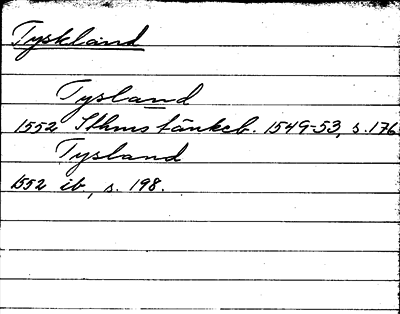 Tyskland
Tysland
1552 Sthms tänkeb. 1549-53, s. 176
Tysland
1552 ib, s. 198.